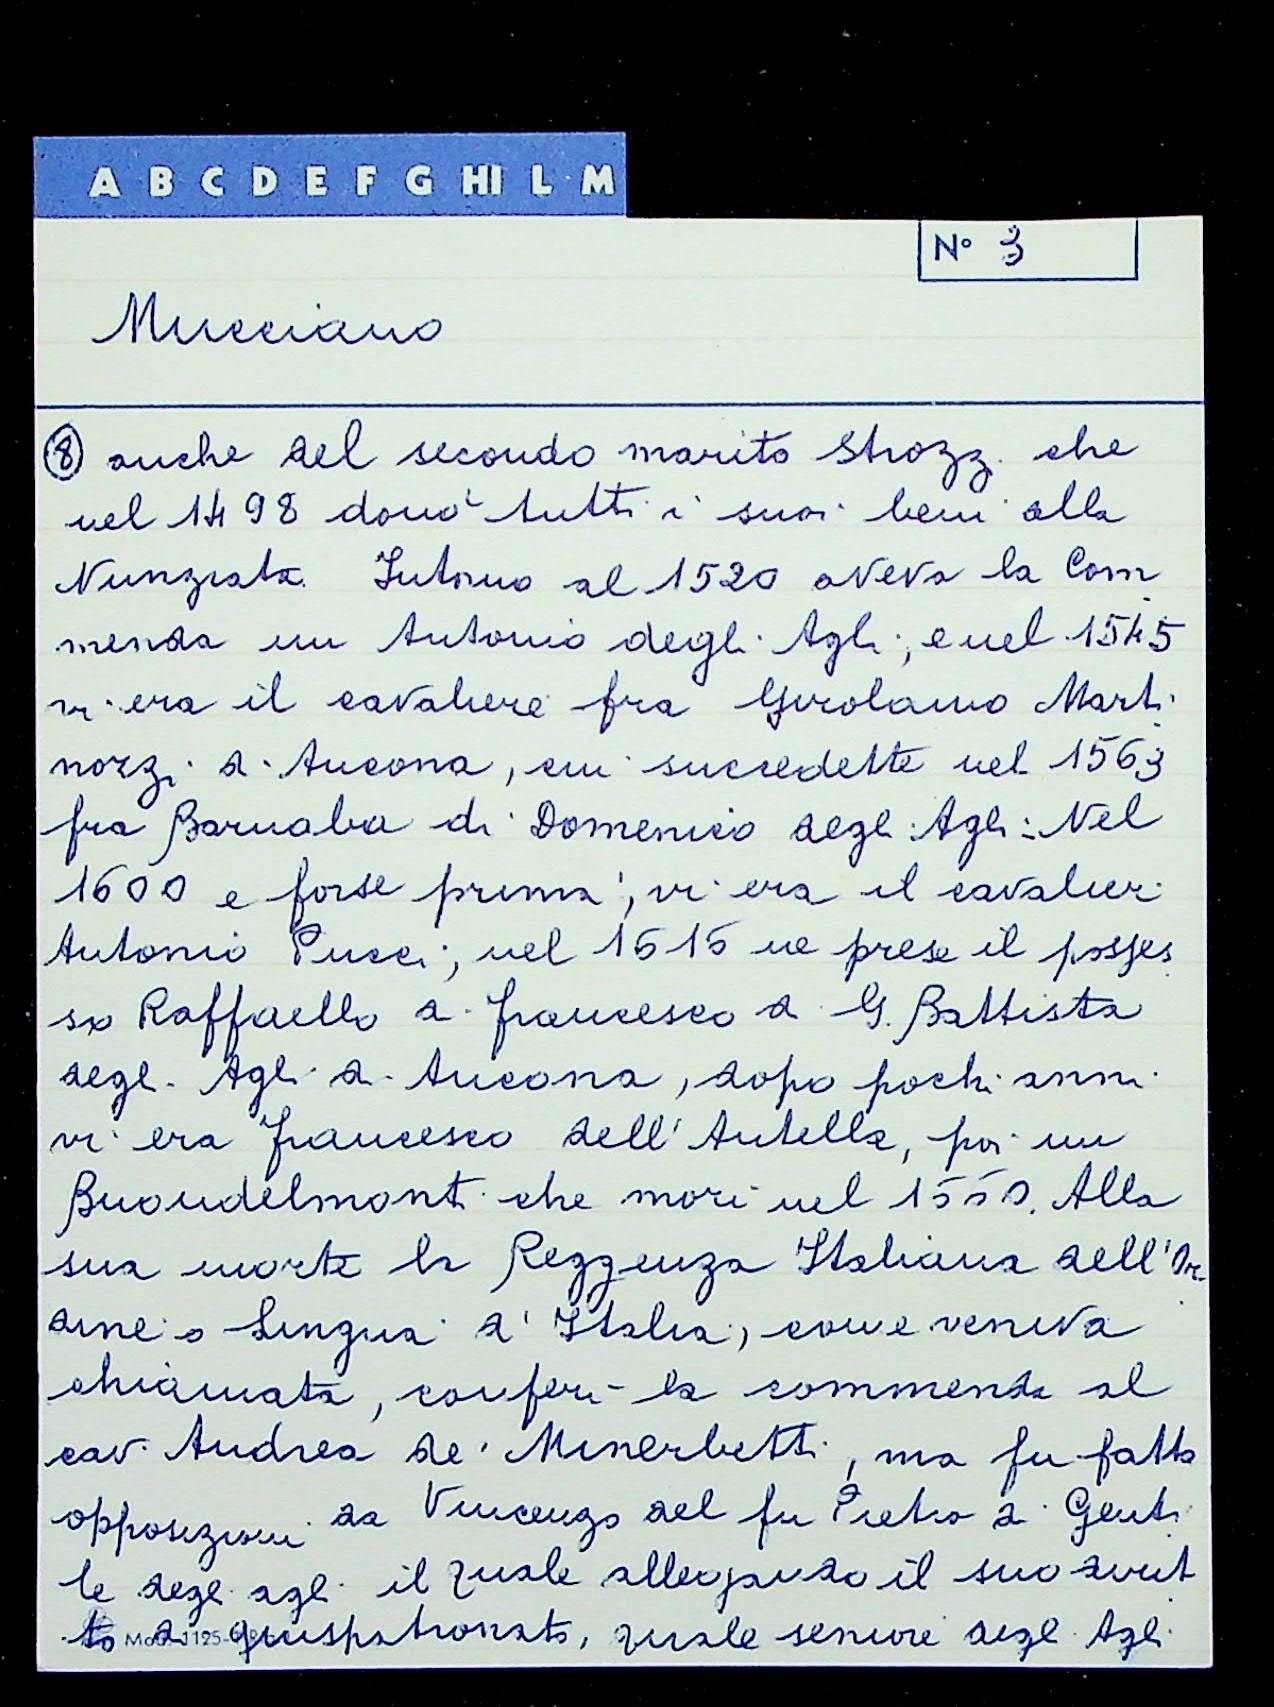 A B C D E F G HI L M
N° 3
Mucciano
⑧ anche del secondo marito Strozzi che
nel 1498 donò tutti i suoi beni alla
Nunziata. Intorno al 1520 aveva la Com
menda un Antonio degli Agli; e nel 1545
vi era il cavaliere fra Girolamo Marti
nozzi di Ancona, cui succedette nel 1563
fra Barnaba di Domenico degli Agli: Nel
1600 e forse prima, vi era il cavalier
Antonio Pucci; nel 1615 ne prese il posses
so Raffaello di Francesco di G. Battista
degli Agli di Ancona, dopo pochi anni
vi era Francesco dell'Antella, poi un
Buondelmonti che morì nel 1550. Alla
sua morte la Reggenza Italiana dell'Or
dine o Lingua d'Italia, come veniva
chiamata, conferì la commenda al
cav. Andrea de' Minerbetti, ma fu fatta
opposizioni da Vincenzo del fu Pietro di Genti
le degli agli il quale allegando il suo dirit
to di giuspatronato, quale seniore degli Agli